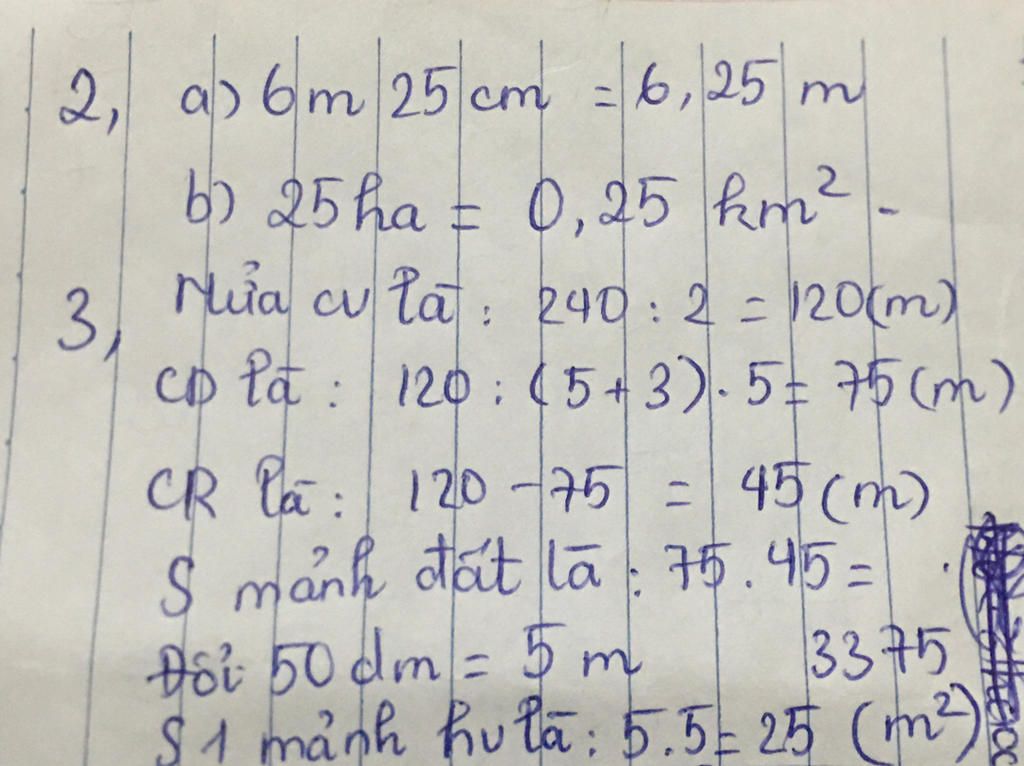 2, a) 6 m 25 cm = 6,25 m
b) 25 ha = 0,25 km² -
3, Nửa cv là : 240 : 2 = 120 (m)
CD là : 120 : (5 + 3) . 5 = 75 (m)
CR là : 120 - 75 = 45 (m)
S mảnh đất là : 75 . 45 =
Đổi 50 dm = 5 m 3375
S 1 mảnh hv là : 5.5 = 25 (m²)